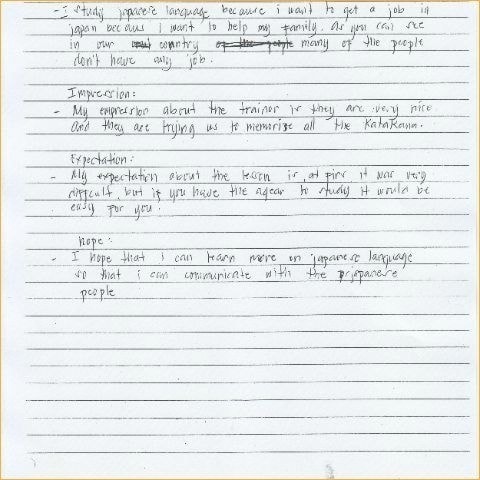 - I study japanese language because i want to get a job in
japan becaus i want to help my family. as you can see
in our country many of the people
don't have any job.
Impression:
- My expression about the trainor is they are very nice
And they are trying us to memorize all the Katakana.
Expectation:
- My expectation about the lesson is at firs it was very
difficult but if you have the to study it would be
easy for you.
hope:
- I hope that i can learn more on japanese language
so that i can communicate with the
people